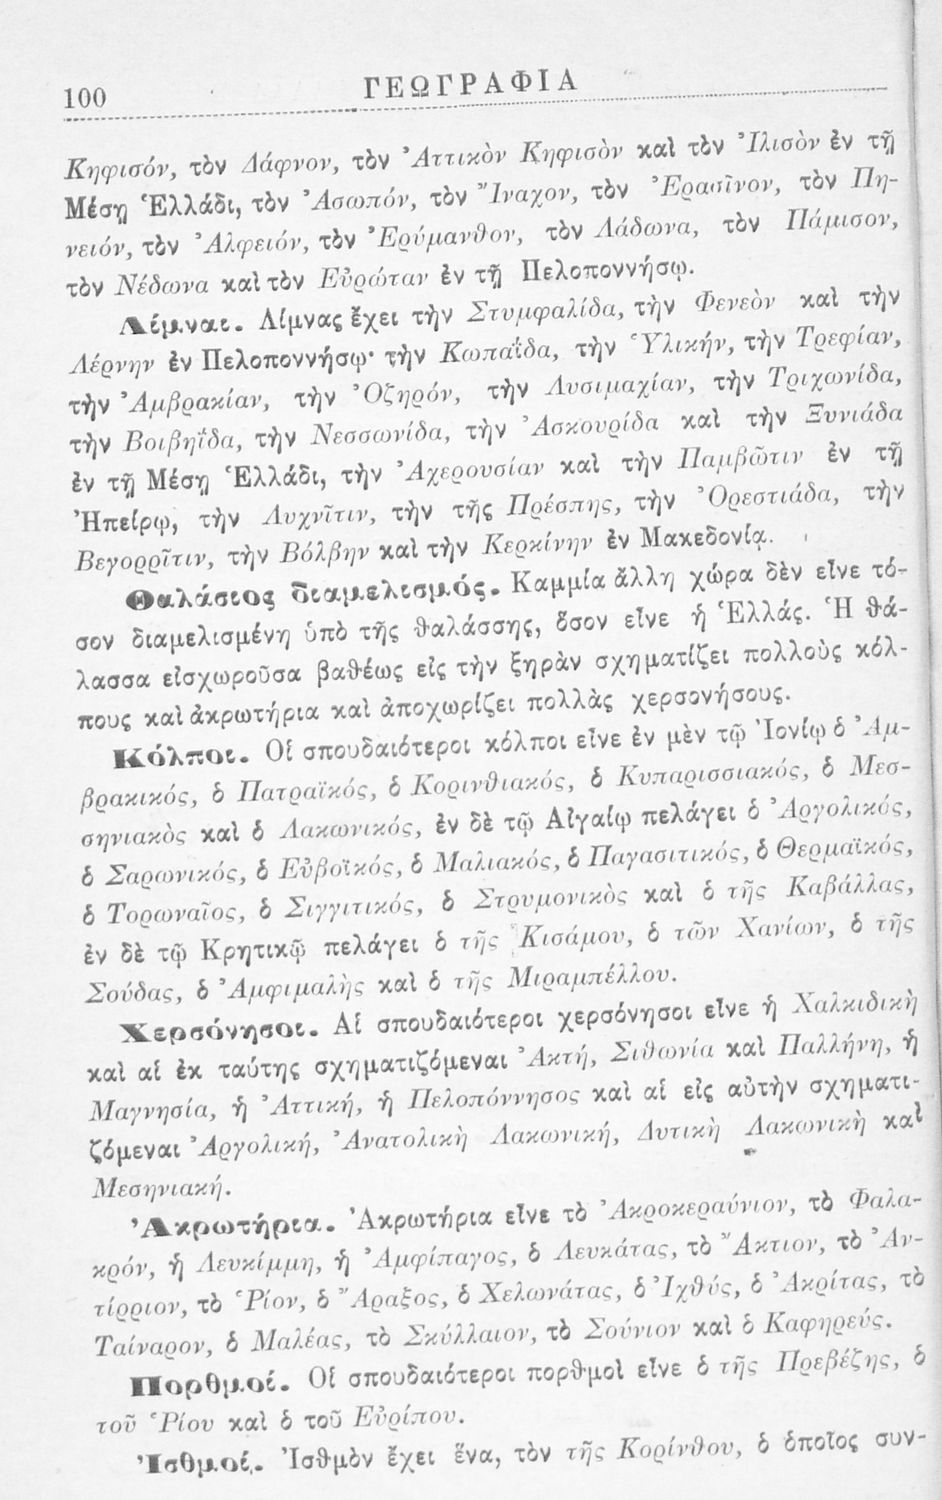 100
ΓΕΩΓΡΑΦΙΑ
Κηφισόν, τὸν Δάφνον, τὸν Ἀττικὸν Κηφισὸν καὶ τὸν Ἰλισὸν ἐν τῇ
Μέσῃ Ἑλλάδι, τὸν Ἀσωπόν, τὸν Ἴναχον, τὸν Ἐρασῖνον, τὸν Πη-
νειόν, τὸν Ἀλφειόν, τὸν Ἐρύμανθον, τὸν Λάδωνα, τὸν Πάμισον,
τὸν Νέδωνα καὶ τὸν Εὐρώταν ἐν τῇ Πελοποννήσῳ.
Λίμναι. Λίμνας ἔχει τὴν Στυμφαλίδα, τὴν Φενεὸν καὶ τὴν
Λέρνην ἐν Πελοποννήσῳ· τὴν Κωπαΐδα, τὴν Ὑλικήν, τὴν Τρεφίαν,
τὴν Ἀμβρακίαν, τὴν Ὀζηρόν, τὴν Λυσιμαχίαν, τὴν Τριχωνίδα,
τὴν Βοιβηΐδα, τὴν Νεσσωνίδα, τὴν Ἀσκουρίδα καὶ τὴν Ξυνιάδα
ἐν τῇ Μέσῃ Ἑλλάδι, τὴν Ἀχερουσίαν καὶ τὴν Παμβῶτιν ἐν τῇ
Ἠπείρῳ, τὴν Λυχνῖτιν, τὴν τῆς Πρέσπης, τὴν Ὀρεστιάδα, τὴν
Βεγορρῖτιν, τὴν Βόλβην καὶ τὴν Κερκίνην ἐν Μακεδονίᾳ.
Θαλάσιος διαμελισμός. Καμμία ἄλλη χώρα δὲν εἶνε τό-
σον διαμελισμένη ὑπὸ τῆς θαλάσσης, ὅσον εἶνε ἡ Ἑλλάς. Ἡ θά-
λασσα εἰσχωροῦσα βαθέως εἰς τὴν ξηρὰν σχηματίζει πολλοὺς κόλ-
πους καὶ ἀκρωτήρια καὶ ἀποχωρίζει πολλὰς χερσονήσους.
Κόλποι. Οἱ σπουδαιότεροι κόλποι εἶνε ἐν μὲν τῷ Ἰονίῳ ὁ Ἀμ-
βρακικός, ὁ Πατραϊκός, ὁ Κορινθιακός, ὁ Κυπαρισσιακός, ὁ Μεσ-
σηνιακὸς καὶ ὁ Λακωνικός, ἐν δὲ τῷ Αἰγαίῳ πελάγει ὁ Ἀργολικός,
ὁ Σαρωνικός, ὁ Εὐβοϊκός, ὁ Μαλιακός, ὁ Παγασιτικός, ὁ Θερμαϊκός,
ὁ Τορωναῖος, ὁ Σιγγιτικός, ὁ Στρυμονικὸς καὶ ὁ τῆς Καβάλλας,
ἐν δὲ τῷ Κρητικῷ πελάγει ὁ τῆς Κισάμου, ὁ τῶν Χανίων, ὁ τῆς
Σούδας, ὁ Ἀμφιμαλὴς καὶ ὁ τῆς Μιραμπέλλου.
Χερσόνησοι. Αἱ σπουδαιότεροι χερσόνησοι εἶνε ἡ Χαλκιδικὴ
καὶ αἱ ἐκ ταύτης σχηματιζόμεναι Ἀκτή, Σιθωνία καὶ Παλλήνη, ἡ
Μαγνησία, ἡ Ἀττική, ἡ Πελοπόννησος καὶ αἱ εἰς αὐτὴν σχηματι-
ζόμεναι Ἀργολική, Ἀνατολικὴ Λακωνική, Δυτικὴ Λακωνικὴ καὶ
Μεσηνιακή.
Ἀκρωτήρια. Ἀκρωτήρια εἶνε τὸ Ἀκροκεραύνιον, τὸ Φαλα-
κρόν, ἡ Λευκίμμη, ἡ Ἀμφίπαγος, ὁ Λευκάτας, τὸ Ἄκτιον, τὸ Ἀν-
τίρριον, τὸ Ῥίον, ὁ Ἄραξος, ὁ Χελωνάτας, ὁ Ἰχθύς, ὁ Ἀκρίτας, τὸ
Ταίναρον, ὁ Μαλέας, τὸ Σκύλλαιον, τὸ Σούνιον καὶ ὁ Καφηρεύς.
Πορθμοί. Οἱ σπουδαιότεροι πορθμοὶ εἶνε ὁ τῆς Πρεβέζης, ὁ
τοῦ Ῥίου καὶ ὁ τοῦ Εὐρίπου.
Ἰσθμοί. Ἰσθμὸν ἔχει ἕνα, τὸν τῆς Κορίνθου, ὁ ὁποῖος συν-